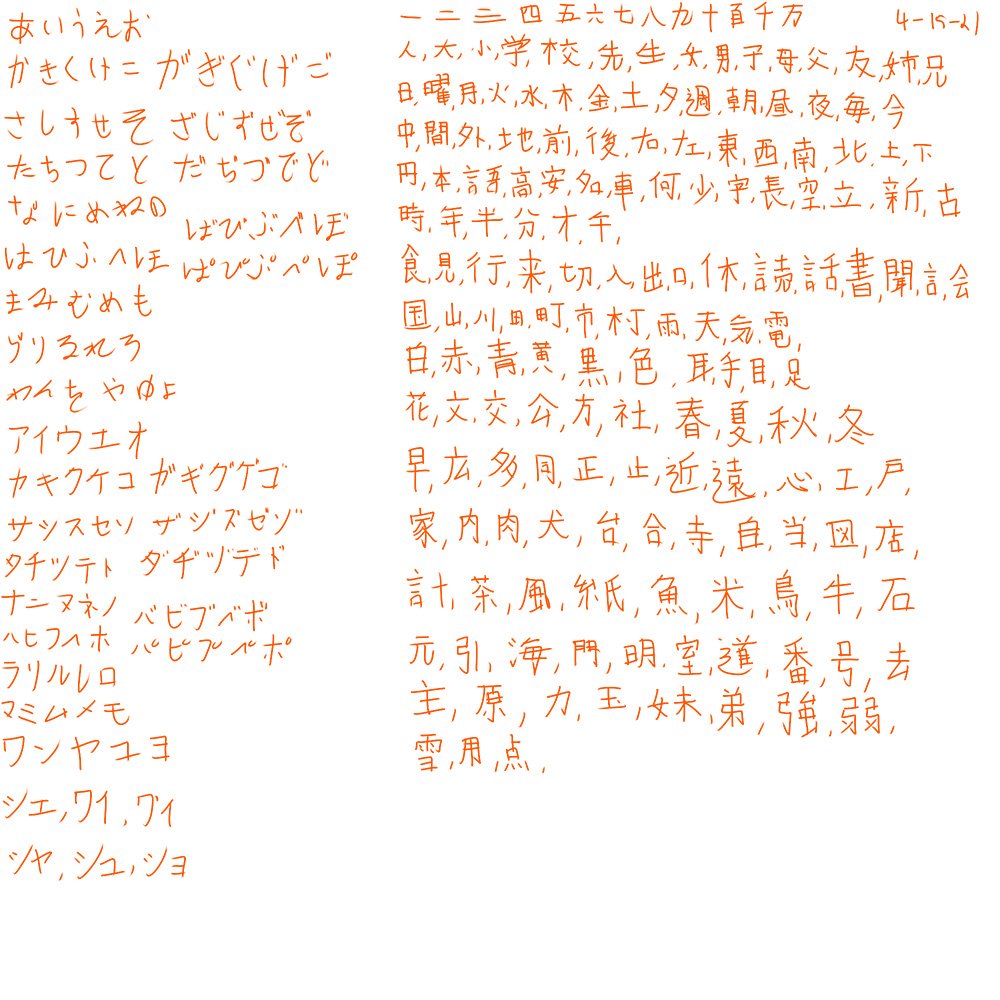 あいうえお
かきくけこ がぎぐげご
さしすせそ ざじずぜぞ
たちつてと だぢづでど
なにぬねの
ばびぶべぼ
はひふへほ
ぱぴぷぺぽ
まみむめも
らりるれろ
わんをやゆよ
アイウエオ
カキクケコ ガギグゲゴ
サシスセソ ザジズゼゾ
タチツテト ダヂヅデド
ナニヌネノ
バビブベボ
ハヒフヘホ
パピプペポ
ラリルレロ
マミムメモ
ワンヤユヨ
シェ,ワイ,ヷィ
シャ,シュ,ショ
一二三四五六七八九十百千万
4-15-21
人,大,小,学,校,先,生,女,男,子,母,父,友,姉,兄
日,曜,月,火,水,木,金,土,夕,週,朝,昼,夜,毎,今
中,間,外,地,前,後,右,左,東,西,南,北,上,下
円,本,語,高,安,名,車,何,少,字,長,空,立,新,古
時,年,半,分,才,午,
食,見,行,来,切,入,出,口,休,読,話,書,聞,言,会
国,山,川,田,町,市,村,雨,天,気,電,
白,赤,青,黄,黒,色,耳,手,目,足
花,文,交,公,方,社,春,夏,秋,冬
早,広,多,同,正,止,近,遠,心,工,戸,
家,内,肉,犬,台,合,寺,自,当,図,店,
計,茶,風,紙,魚,米,鳥,牛,石
元,引,海,門,明,室,道,番,号,去
主,原,力,玉,妹,弟,強,弱,
雪,用,点,